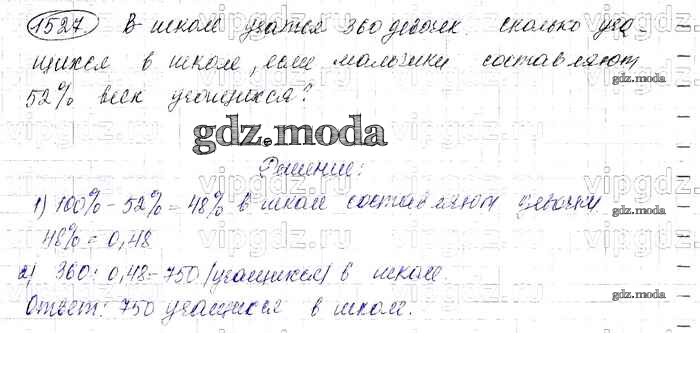 1527 В школе учатся 360 девочек. Сколько уча-
щихся в школе, если мальчики составляют
52% всех учащихся?
gdz.moda
Решение:
1) 100% - 52% = 48% в школе составляют девочки.
48% = 0,48
2) 360 : 0,48 = 750 (учащихся) в школе.
Ответ: 750 учащихся в школе.
gdz.moda
gdz.moda
gdz.moda
gdz.moda
vipgdz.ru